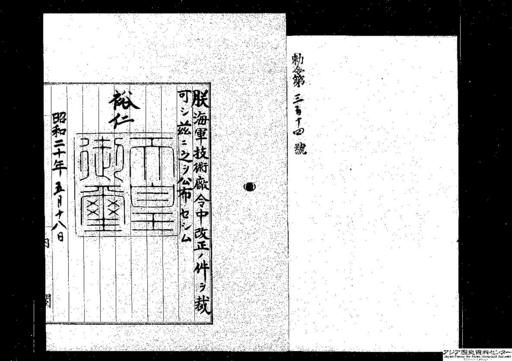 勅令第三百十四號
朕海軍技術廠令中改正ノ件ヲ裁
可シ茲ニ之ヲ公布セシム
裕仁
天皇御璽
昭和二十年五月十八日
内閣
アジア歴史資料センター